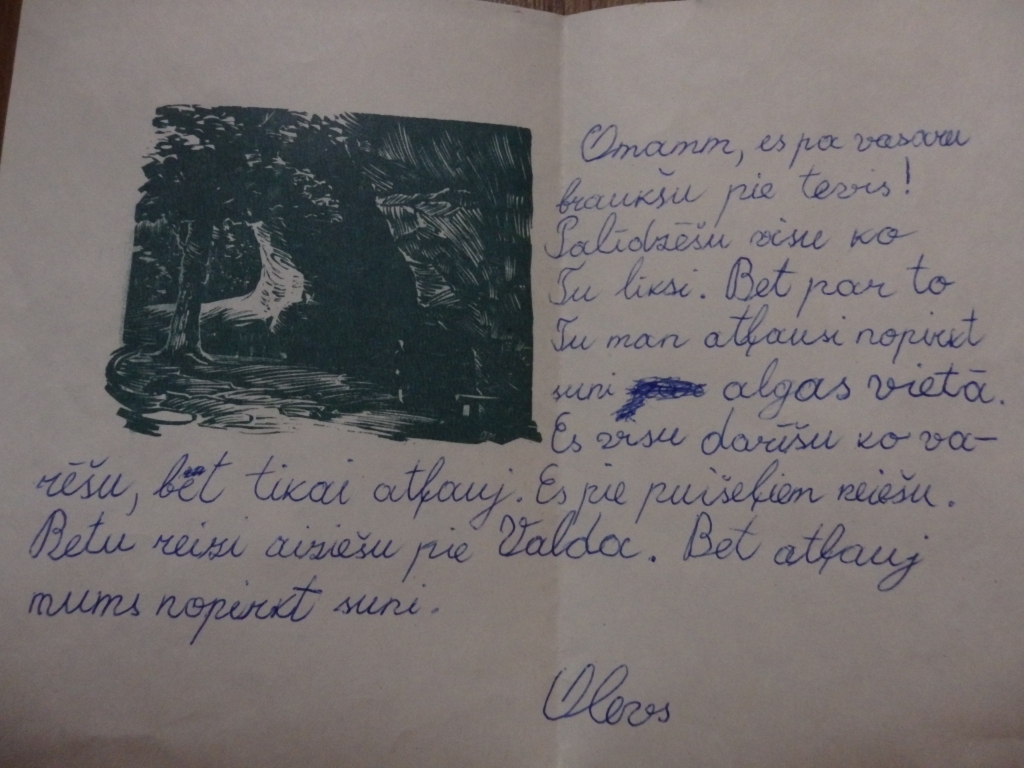 Omamm, es pa vasaru
braukšu pie tevis!
Palīdzēšu visu ko
Tu liksi. Bet par to
Tu man atļausi nopirkt
suni algas vietā.
Es visu darīšu ko va-
rēšu, bet tikai atļauj. Es pie puišeļiem neiešu.
Retu reizi aiziešu pie Valda. Bet atļauj
mums nopirkt suni.
Olevs